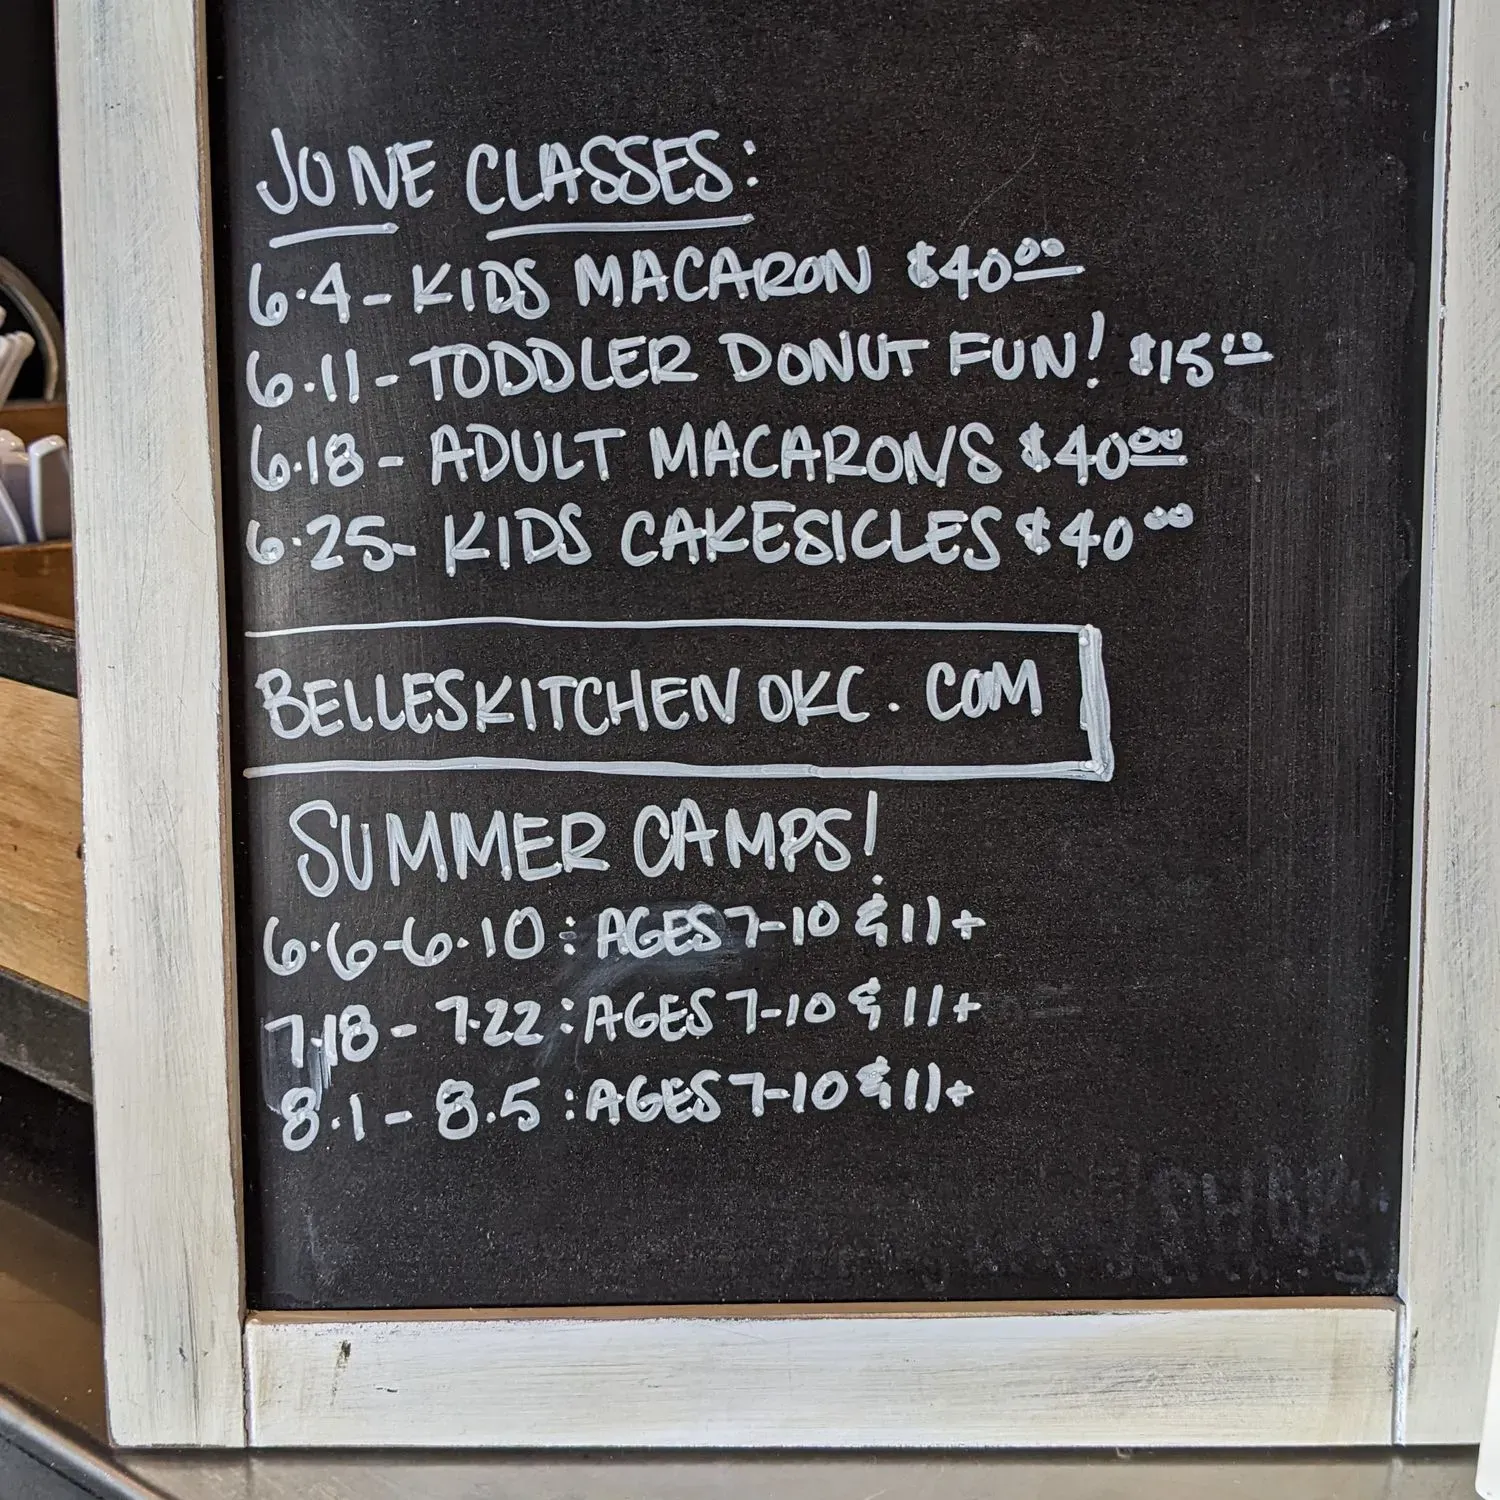 JUNE CLASSES:
6.4- KIDS MACARON $40.00
6.11- TODDLER DONUT FUN! $15.00
6.18- ADULT MACARONS $40.00
6.25- KIDS CAKESICLES $40.00
BELLESKITCHENOKC.COM
SUMMER CAMPS!
6.6-6.10: AGES 7-10 & 11+
7.18-7.22: AGES 7-10 & 11+
8.1-8.5: AGES 7-10 & 11+